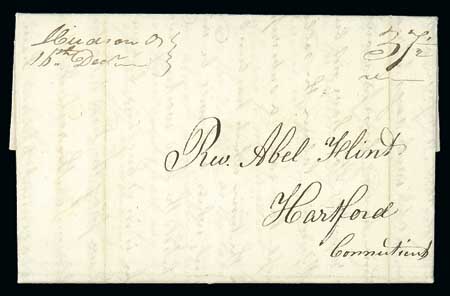 Hudson O
16th Decr
37½
Rev. Abel Flint
Hartford
Connecticut